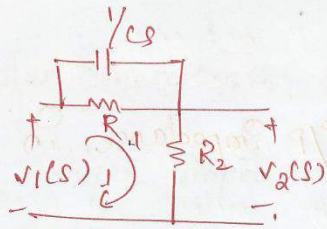 1/CS
R
+ +
R2
V1(S) V2(S)
- -